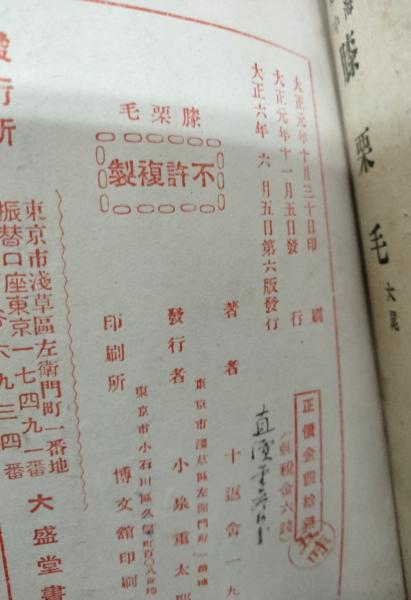 膝栗毛 大尾
大正元年十月三十日印刷
大正元年十一月五日發行
大正六年六月五日第六版發行
膝栗毛
不許複製
正價金四拾錢
(郵稅金六錢)
著者 十返舍一九
東京市淺草區左衛門町一番地
發行者 小泉重太郎
東京市小石川區久堅町百〇八番地
印刷所 博文館印刷
發行所
東京市淺草區左衛門町一番地
大盛堂書
振替口座東京一七四九一番
六九三四番